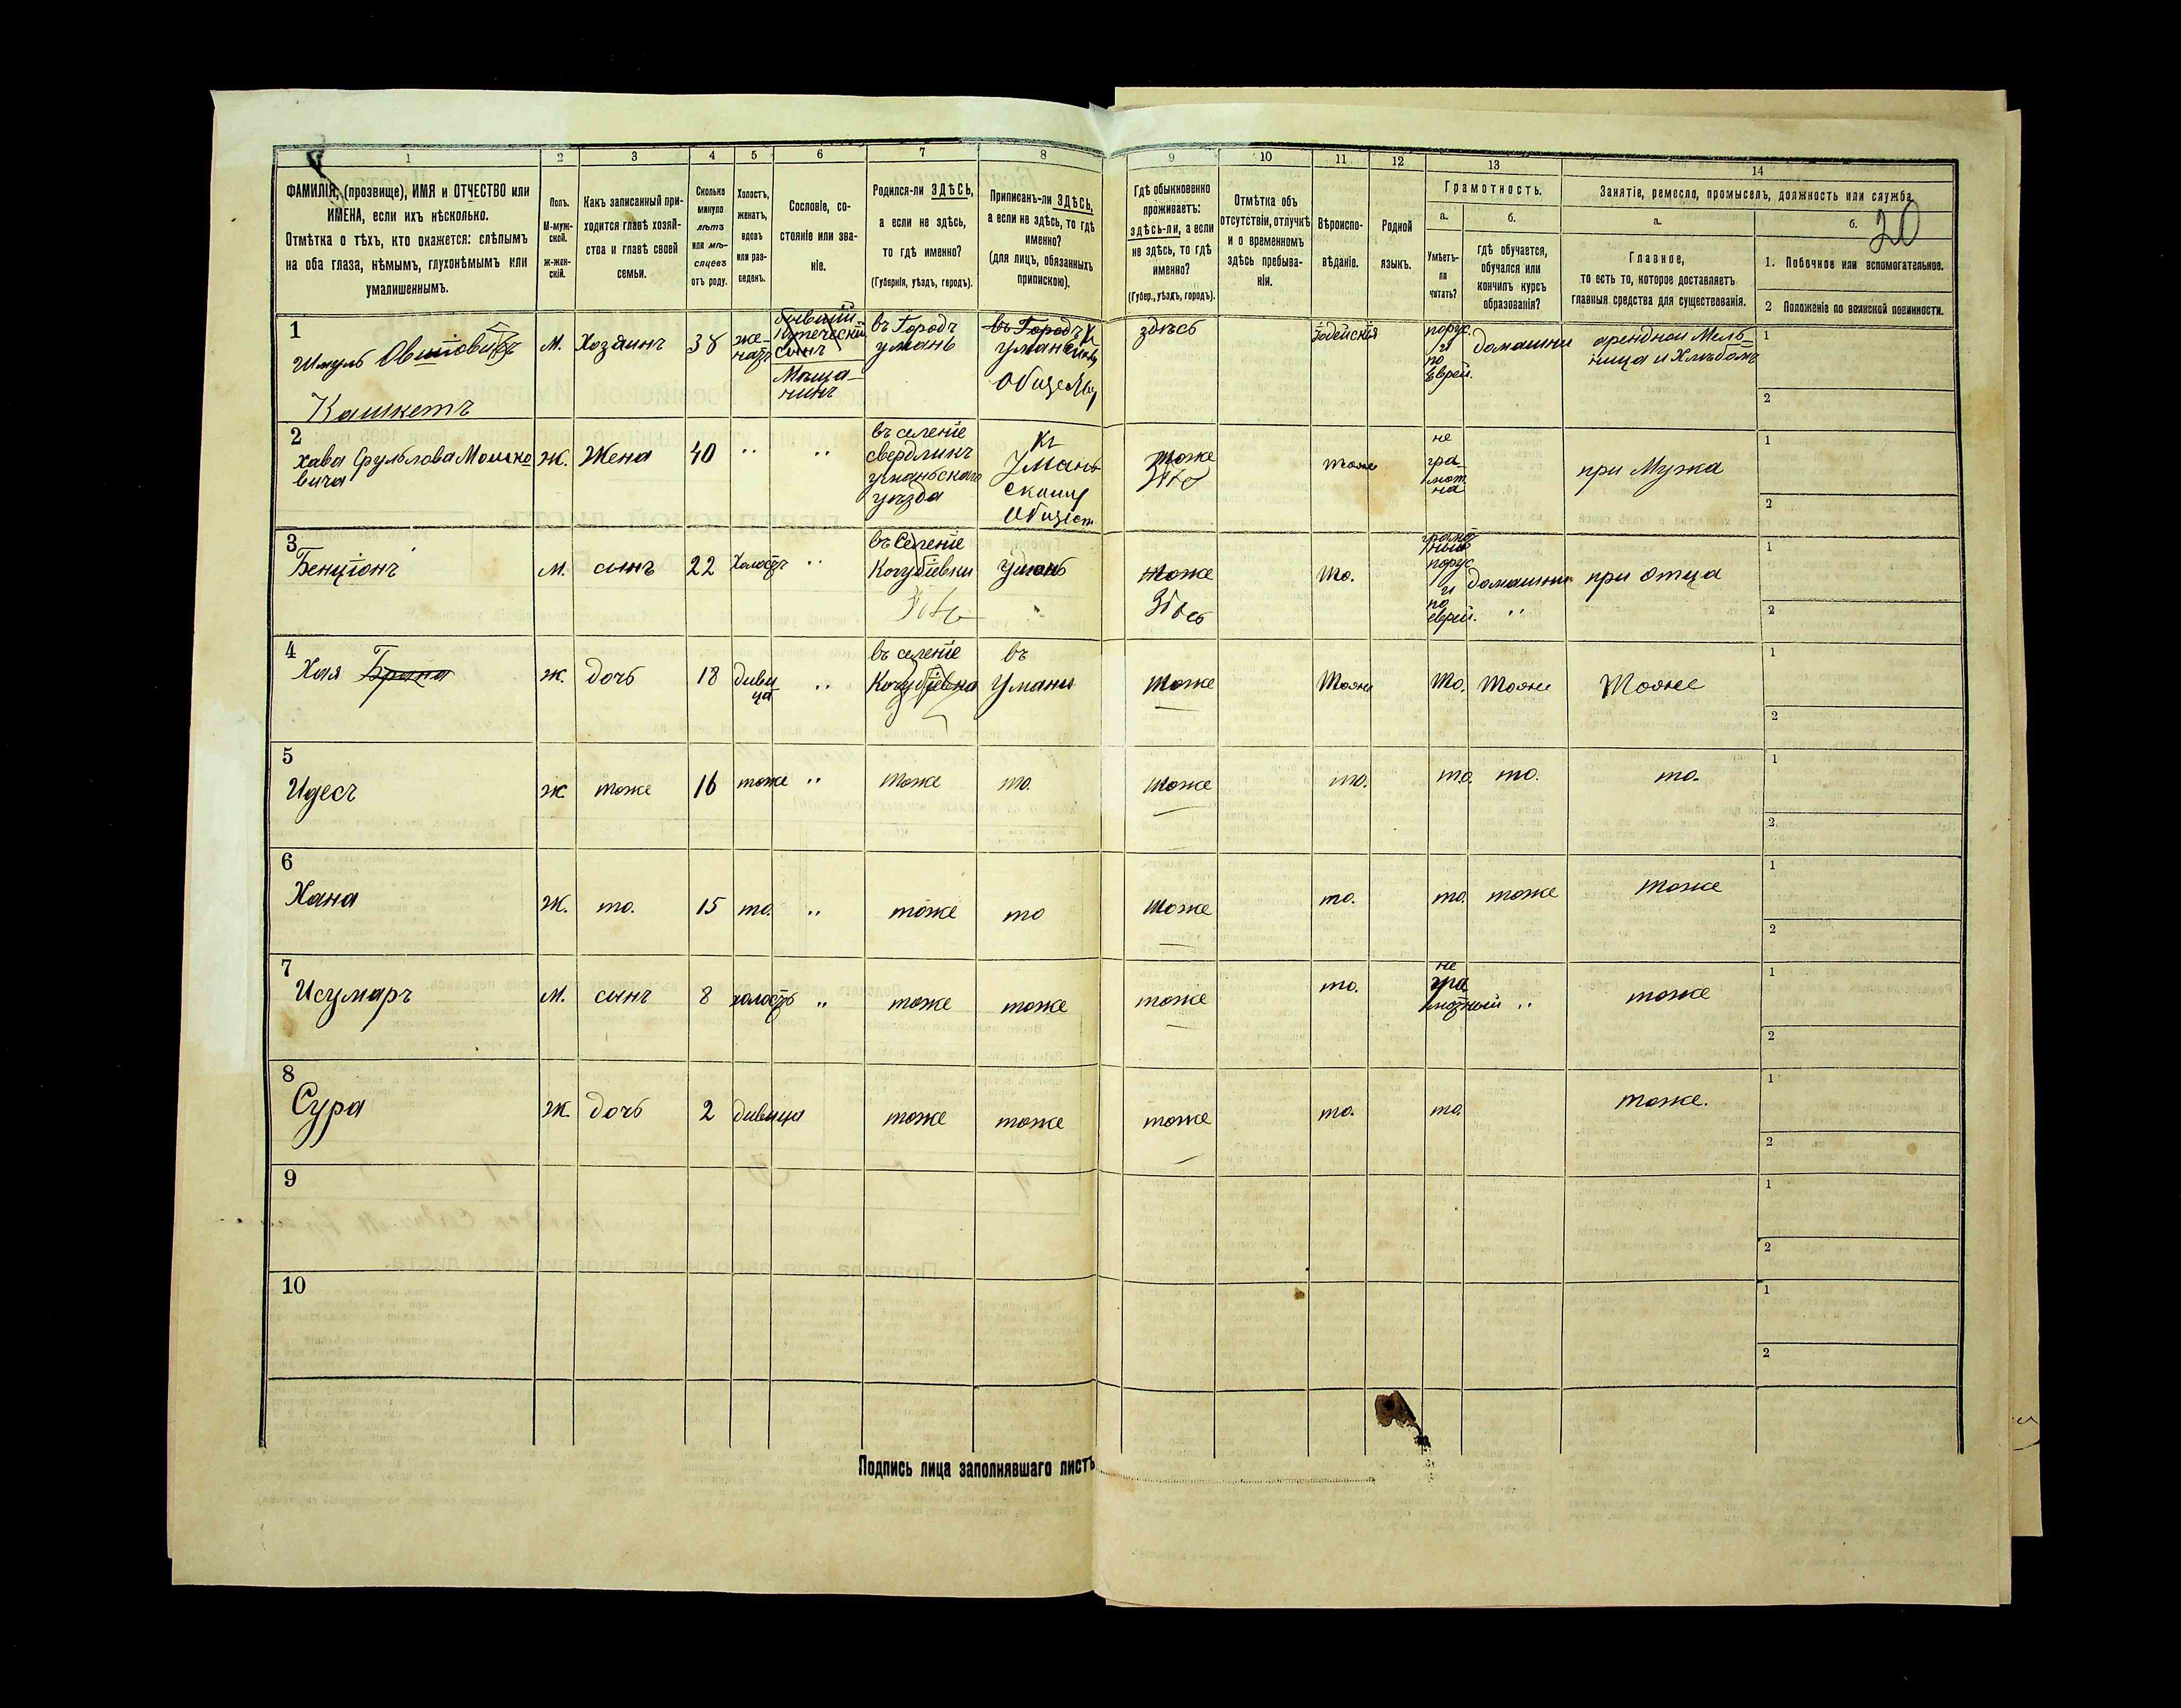 1 2 3 4 5 6 7 8 9 10 11 12 13 14
ФАМИЛІЯ, (прозвище), ИМЯ и ОТЧЕСТВО или
ИМЕНА, если ихъ нѣсколько.
Отмѣтка о тѣхъ, кто окажется: слѣпымъ
на оба глаза, нѣмымъ, глухонѣмымъ или
умалишеннымъ.
Полъ.
М-муж-
ской.
Ж-жен-
скій.
Какъ записанный при-
ходится главѣ хозяй-
ства и главѣ своей
семьи.
Сколько
минуло
лѣтъ
или мѣ-
сяцевъ
отъ роду.
Холостъ,
женатъ,
вдовъ
или раз-
веденъ.
Сословіе, со-
стояніе или зва-
ніе.
Родился-ли ЗДѢСЬ,
а если не здѣсь,
то гдѣ именно?
(Губернія, уѣздъ, городъ).
Приписанъ-ли ЗДѢСЬ,
а если не здѣсь, то гдѣ
именно?
(для лицъ, обязанныхъ
припискою).
Гдѣ обыкновенно
проживаетъ:
здѣсь-ли, а если
не здѣсь, то гдѣ
именно?
(Губер., уѣздъ, городъ).
Отмѣтка объ
отсутствіи, отлучкѣ
и о временномъ
здѣсь пребыва-
ніи.
Вѣроиспо-
вѣданіе.
Родной
языкъ.
Грамотность.
а.
Умѣетъ-
ли
читать?
б.
гдѣ обучается,
обучался или
кончилъ курсъ
образованія?
Занятіе, ремесло, промыселъ, должность или служба.
а.
Главное,
то есть то, которое доставляетъ
главныя средства для существованія.
б.
20
1. Побочное или вспомогательное.
2 Положеніе по воинской повинности.
1
Шмуль
Кашкетъ
М.
Хозяинъ
38
же-
натъ
бывшій
купеческій
сынъ
Мѣща-
нинъ
въ Городъ
умань
въ Городъ
здѣсь
Іюдейскія
порус.
и
по
Еврей.
домашни
арендной Мель-
ница и Хлѣбомъ
1
2
2
хава Срульлова Мошко
вича
Ж.
Жена
40
"
"
въ селеніе
свердлинъ
уманьскаго
уѣзда
Къ
Умань
скому
Общест.
тоже
тоже
не
гра-
мот
на
при Мужа
1
2
3
Бенціонъ
М.
сынъ
22
Холостъ
"
въ Селеніе
Кочубіевки
Умань
"
тоже
Здѣсь
то.
порус
и
по
еврей.
домашни
"
при отца
1
2
4
Хая
Ж.
дочь
18
диви
ца
"
въ селеніе
Кочубіевка
въ
Умани
тоже
тоже
то.
тоже
Тоже
1
2
5
Идесъ
ж
тоже
16
тоже
"
тоже
то.
тоже
то.
то.
то.
то.
1
2
6
Хана
Ж.
то.
15
то.
"
тоже
то
тоже
то.
то.
тоже
тоже
1
2
7
Исумаръ
М.
сынъ
8
холостъ
"
тоже
тоже
тоже
то.
не
гра
мотный
"
тоже
1
2
8
Сура
Ж.
дочь
2
дивица
тоже
тоже
тоже
то.
то.
тоже.
1
2
9
1
2
10
1
2
Подпись лица заполнявшаго листъ